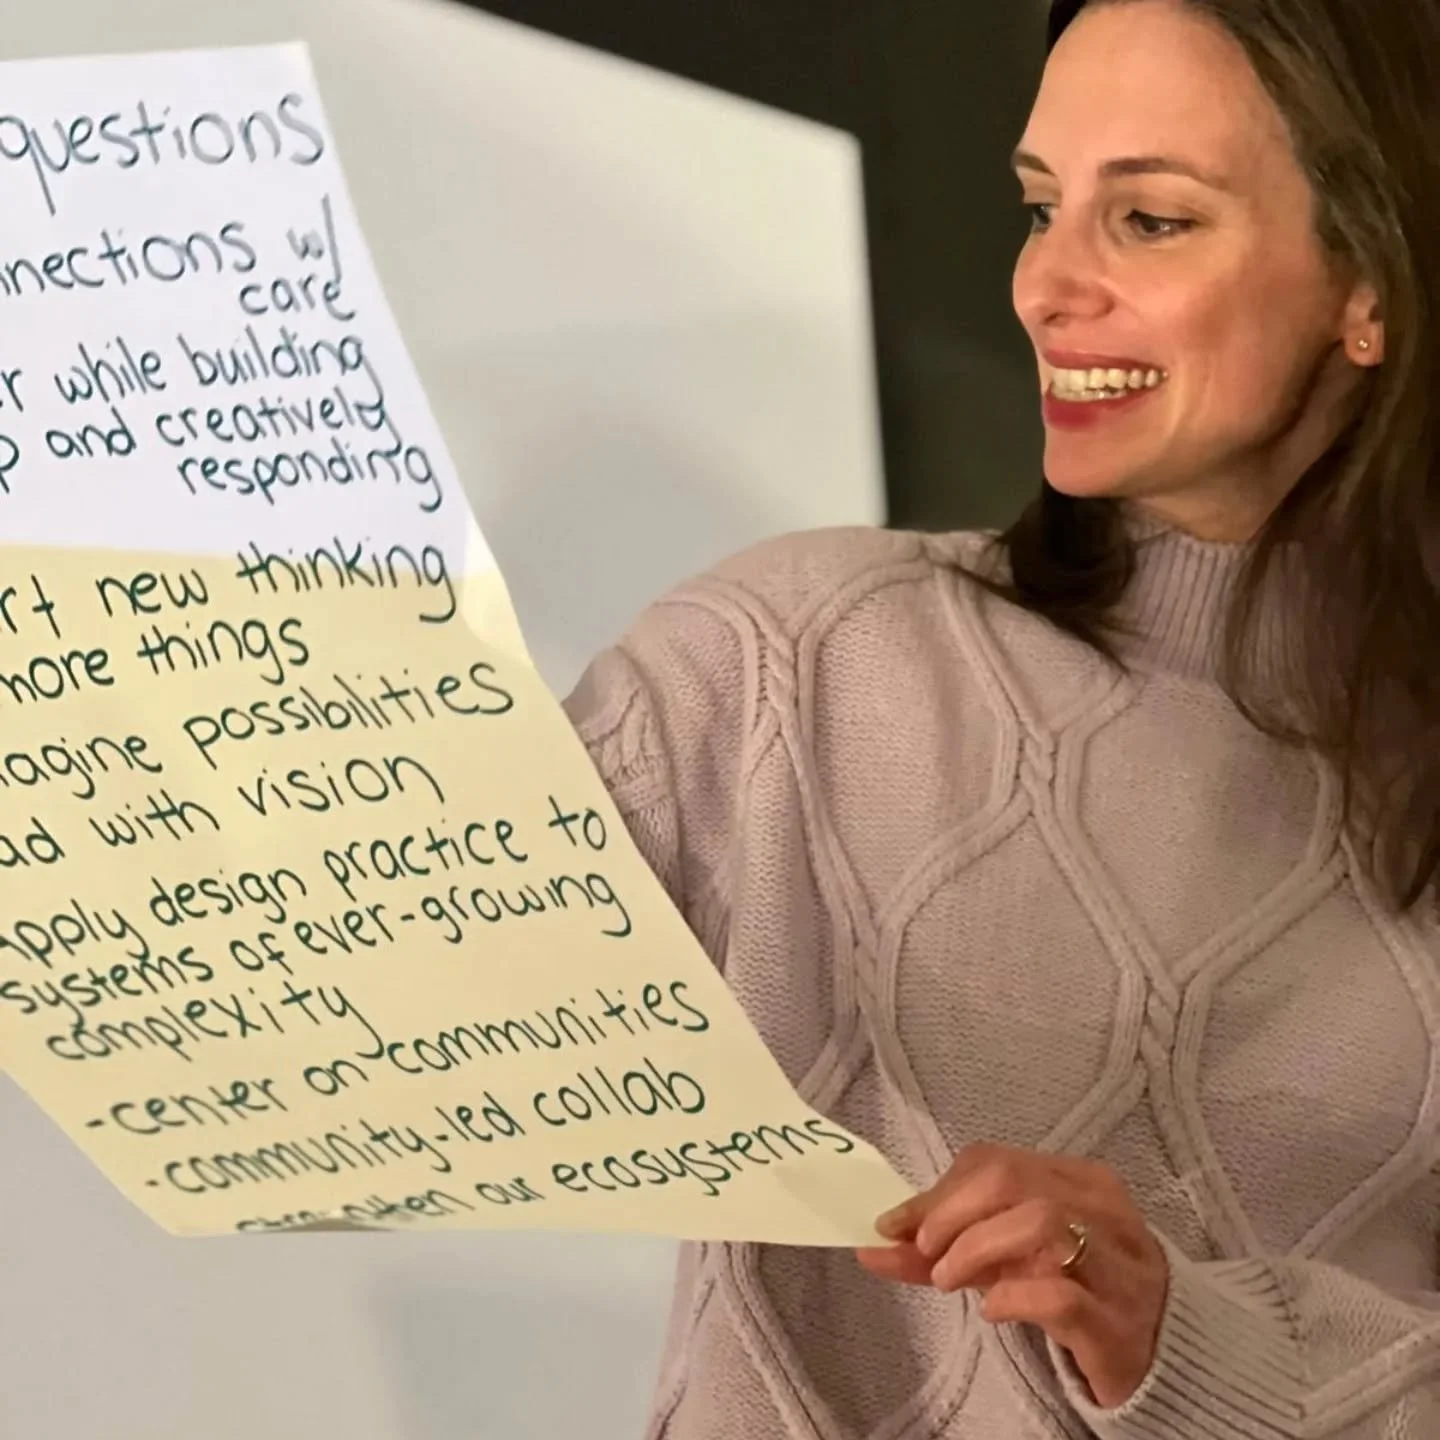 questions
nnections w/
care
r while building
p and creatively
responding
rt new thinking
more things
agine possibilities
ad with vision
Apply design practice to
systems of ever-growing
complexity
-center on communities
-community-led collab
our ecosystems